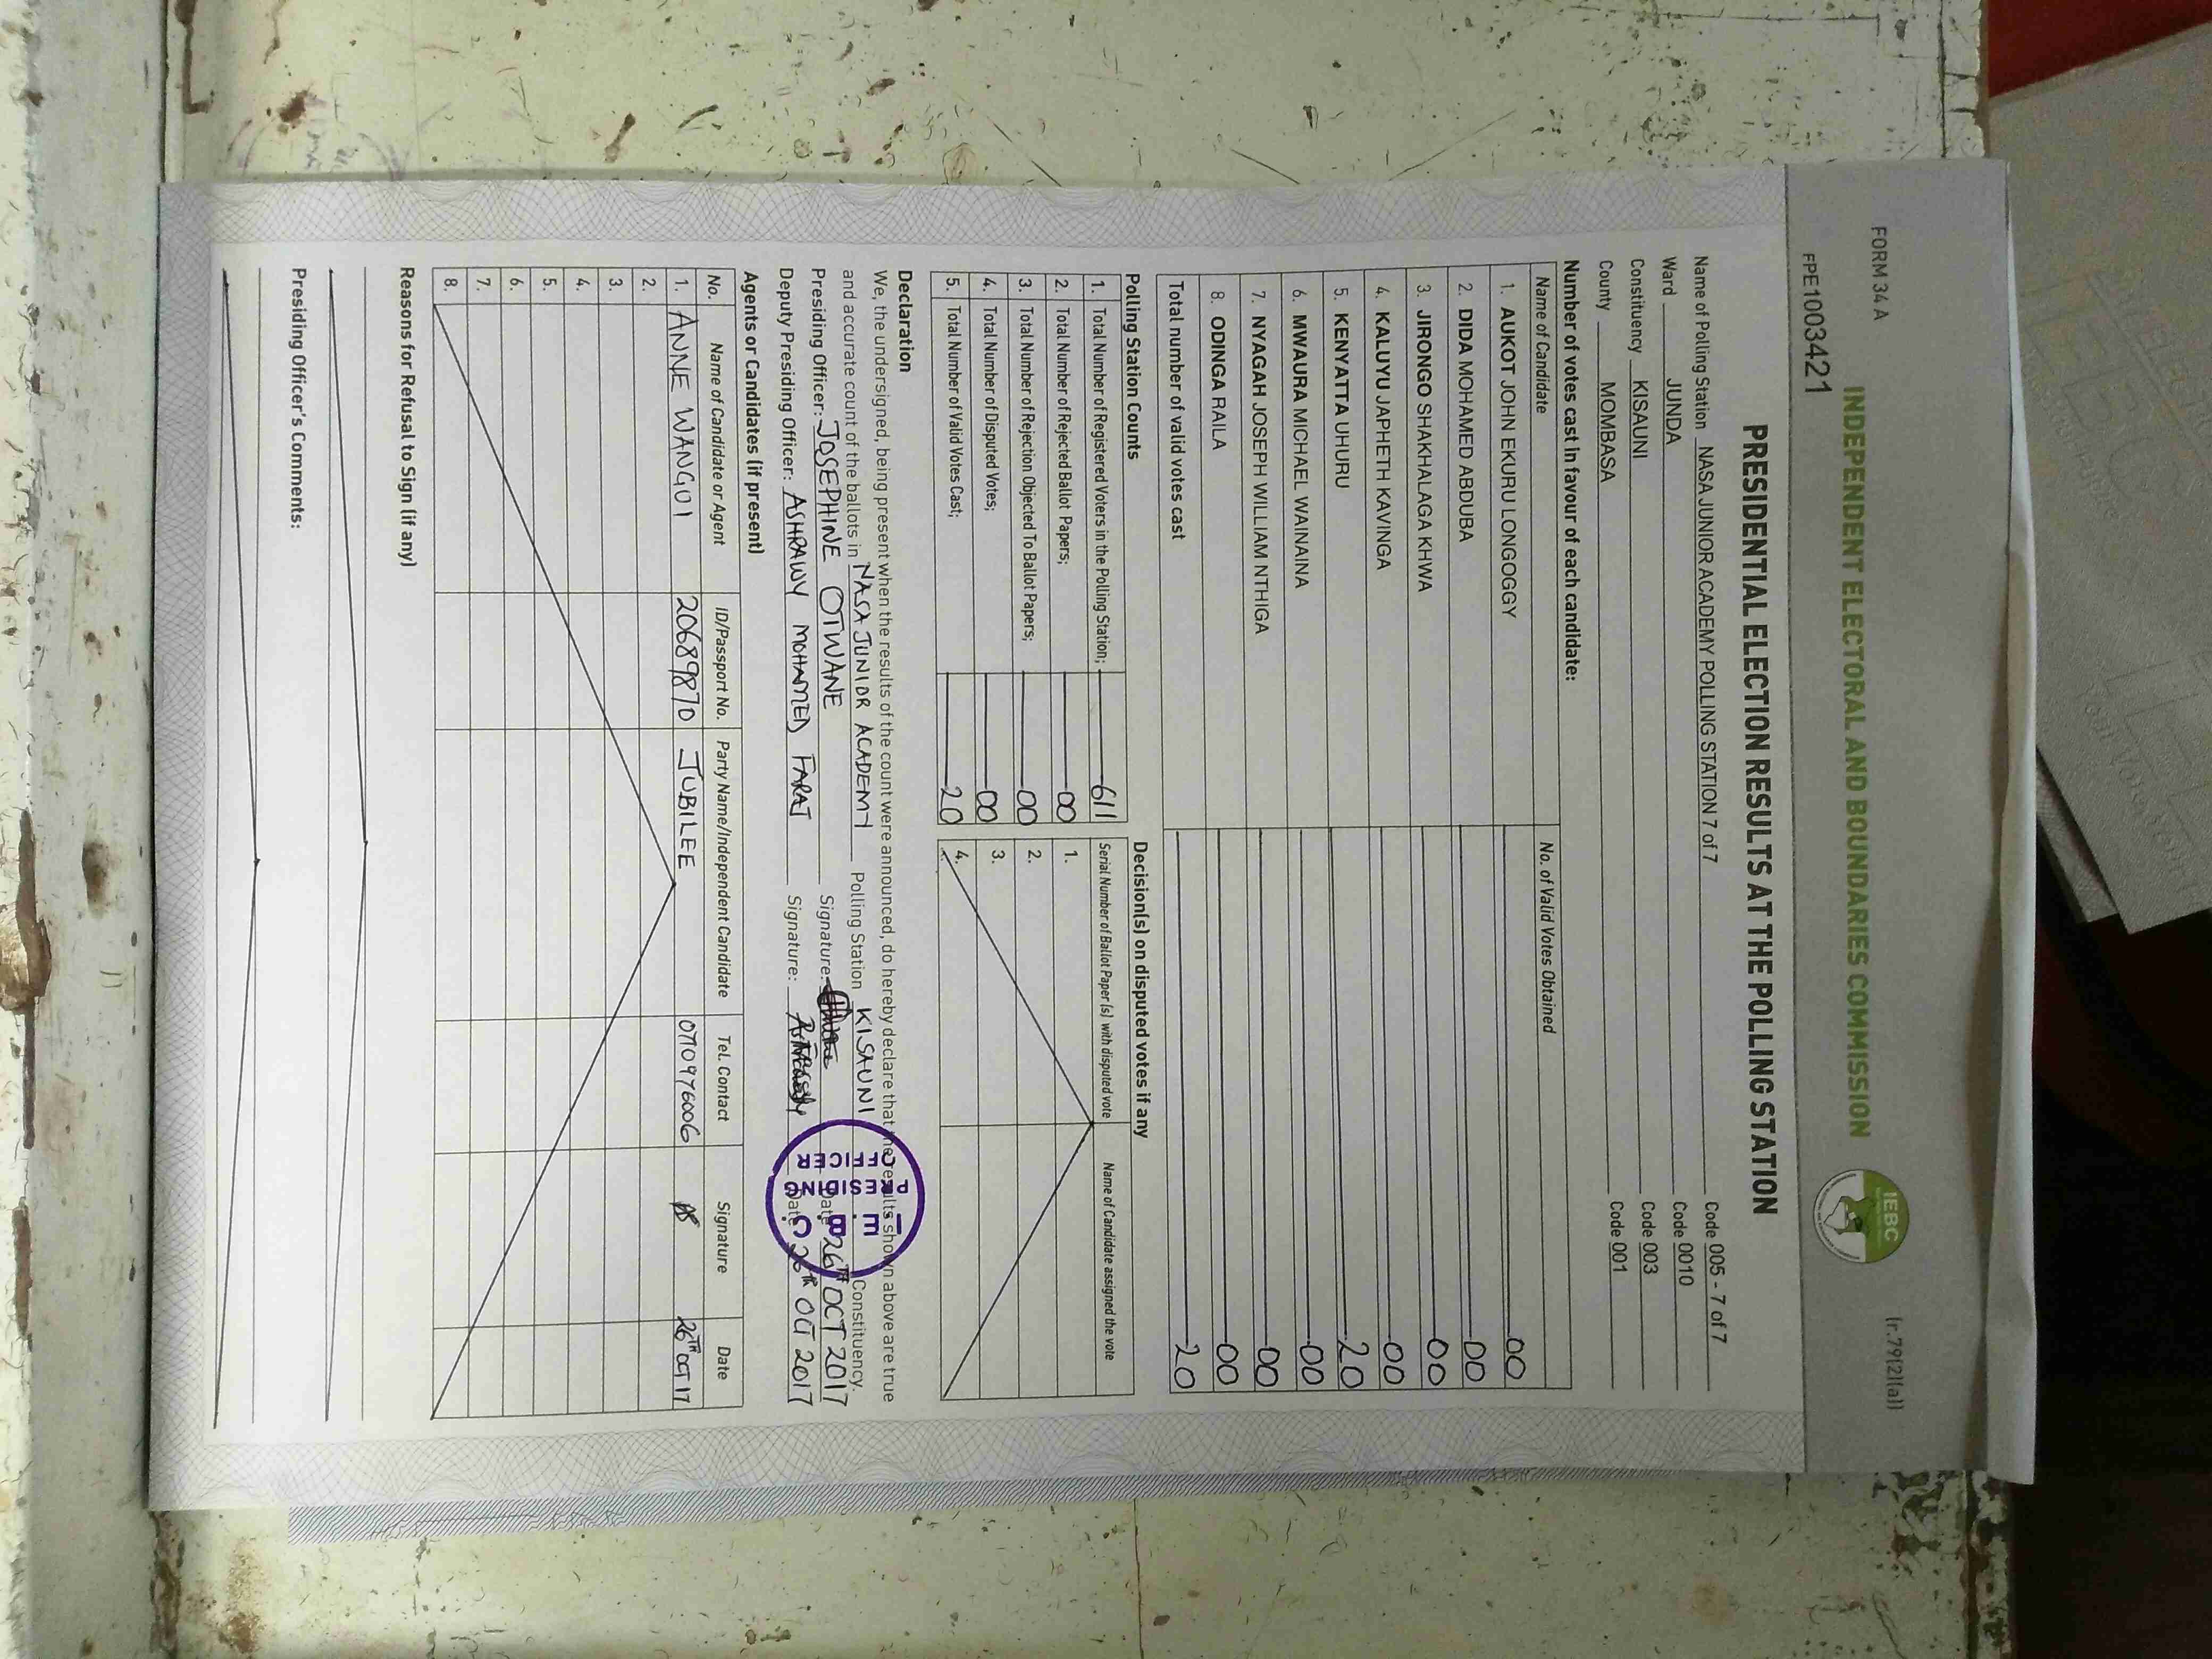 FORM 34 A
(r.79(2)(a))
INDEPENDENT ELECTORAL AND BOUNDARIES COMMISSION
IEBC
FPE1003421
PRESIDENTIAL ELECTION RESULTS AT THE POLLING STATION
Name of Polling Station NASA JUNIOR ACADEMY POLLING STATION 7 of 7 Code 005 - 7 of 7
Ward JUNDA Code 0010
Constituency KISAUNI Code 003
County MOMBASA Code 001
Number of votes cast in favour of each candidate:
Name of Candidate No. of Valid Votes Obtained
1. AUKOT JOHN EKURU LONGOGGY 00
2. DIDA MOHAMED ABDUBA 00
3. JIRONGO SHAKHALAGA KHWA 00
4. KALUYU JAPHETH KAVINGA 00
5. KENYATTA UHURU 20
6. MWAURA MICHAEL WAINAINA 00
7. NYAGAH JOSEPH WILLIAM NTHIGA 00
8. ODINGA RAILA 00
Total number of valid votes cast 20
Polling Station Counts
1. Total Number of Registered Voters in the Polling Station; 611
2. Total Number of Rejected Ballot Papers; 00
3. Total Number of Rejection Objected To Ballot Papers; 00
4. Total Number of Disputed Votes; 00
5. Total Number of Valid Votes Cast; 20
Decision(s) on disputed votes if any
Serial Number of Ballot Paper(s) with disputed vote Name of Candidate assigned the vote
1.
2.
3.
4.
Declaration
We, the undersigned, being present when the results of the count were announced, do hereby declare that the results shown above are true
and accurate count of the ballots in NASA JUNIOR ACADEMY Polling Station KISAUNI Constituency.
Presiding Officer: JOSEPHINE OTWANE Signature: Date 26TH OCT 2017
Deputy Presiding Officer: ASHRAWY MOHAMED FARAJ Signature: Date 26TH OCT 2017
I.E.B.C.
PRESIDING
OFFICER
Agents or Candidates (if present)
No. Name of Candidate or Agent ID/Passport No. Party Name/Independent Candidate Tel. Contact Signature Date
1. ANNE WANGOI 20689870 JUBILEE 0710976006 26TH OCT 17
2.
3.
4.
5.
6.
7.
8.
Reasons for Refusal to Sign (if any)
Presiding Officer's Comments: